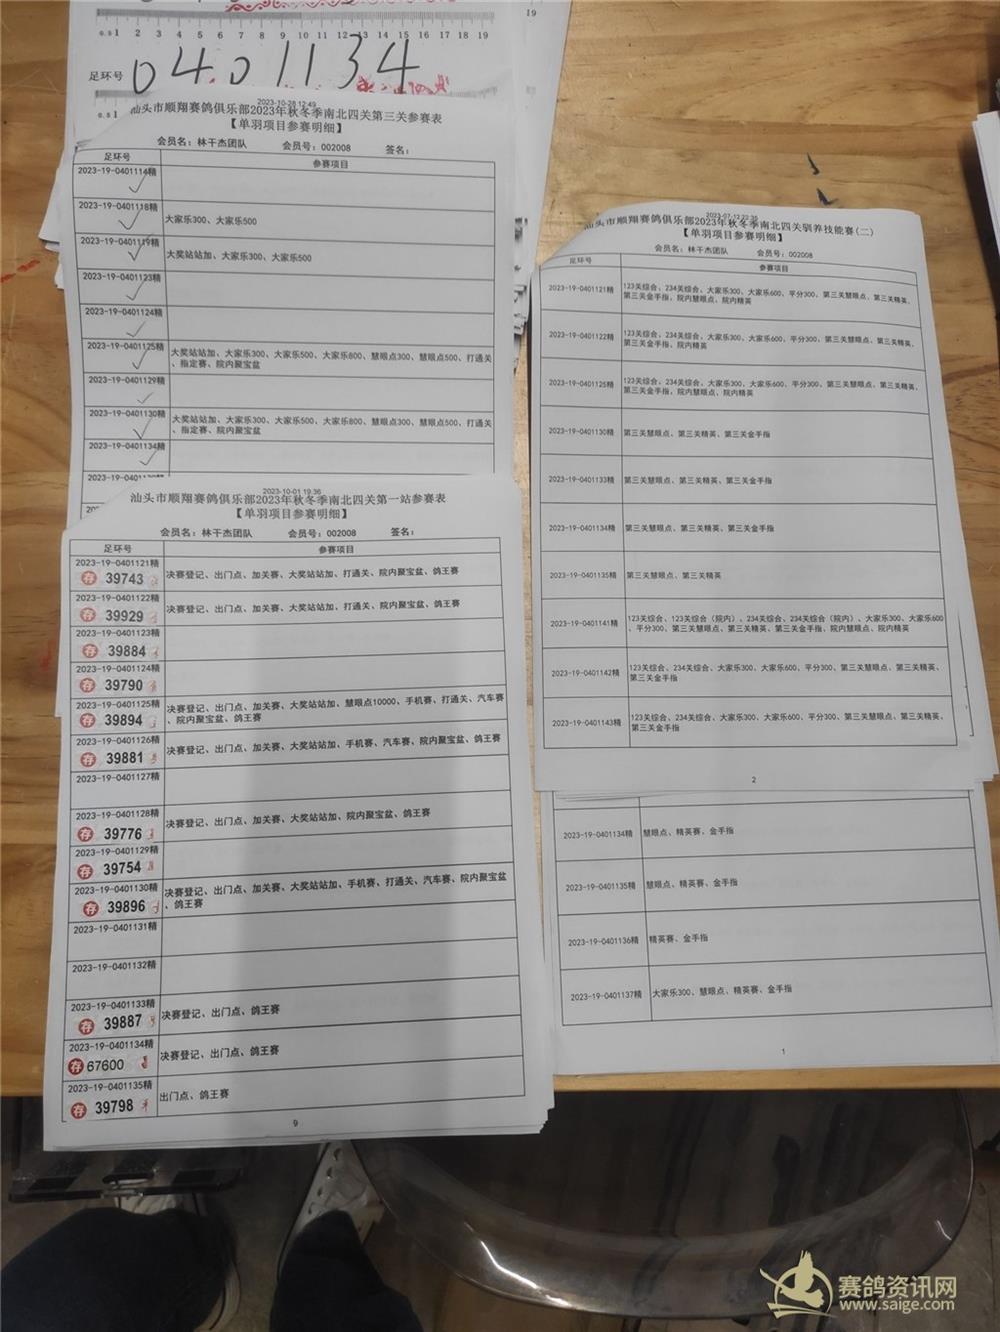 19
0.5 1 2 3 4 5 6 7 8 9 10 11 12 13 14 15 16 17 18 19
足环号 0401134
0.5 1
2023-10-28 12:49
汕头市顺翔赛鸽俱乐部2023年秋冬季南北四关第三关参赛表
【单羽项目参赛明细】
会员名：林干杰团队 会员号：002008 签名：
足环号 参赛项目
2023-19-0401114精
2023-19-0401118精 大家乐300、大家乐500
2023-19-0401119精 大奖站站加、大家乐300、大家乐500
2023-19-0401123精
2023-19-0401124精
2023-19-0401125精 大奖站站加、大家乐300、大家乐500、大家乐800、慧眼点300、慧眼点500、打通关
、指定赛、院内聚宝盆
2023-19-0401129精
2023-19-0401130精 大奖站站加、大家乐300、大家乐500、大家乐800、慧眼点300、慧眼点500、打通关
、指定赛、院内聚宝盆
2023-19-0401134精
2023-10-01 19:36
汕头市顺翔赛鸽俱乐部2023年秋冬季南北四关第一站参赛表
【单羽项目参赛明细】
会员名：林干杰团队 会员号：002008 签名：
足环号 参赛项目
2023-19-0401121精
存 39743 决赛登记、出门点、加关赛、大奖站站加、打通关、院内聚宝盆、鸽王赛
2023-19-0401122精
存 39929 决赛登记、出门点、加关赛、大奖站站加、打通关、院内聚宝盆、鸽王赛
2023-19-0401123精
存 39884
2023-19-0401124精
存 39790
2023-19-0401125精 决赛登记、出门点、加关赛、大奖站站加、慧眼点10000、手机赛、打通关、汽车赛
存 39894 、院内聚宝盆、鸽王赛
2023-19-0401126精
存 39881 决赛登记、出门点、加关赛、大奖站站加、手机赛、汽车赛、院内聚宝盆、鸽王赛
2023-19-0401127精
2023-19-0401128精
存 39776 决赛登记、出门点、加关赛、大奖站站加、院内聚宝盆、鸽王赛
2023-19-0401129精
存 39754
2023-19-0401130精 决赛登记、出门点、加关赛、大奖站站加、手机赛、打通关、汽车赛、院内聚宝盆
存 39896 、鸽王赛
2023-19-0401131精
2023-19-0401132精
2023-19-0401133精
存 39887 决赛登记、出门点、鸽王赛
2023-19-0401134精
存 67600 决赛登记、出门点、鸽王赛
2023-19-0401135精
存 39798 出门点、鸽王赛
9
汕头市顺翔赛鸽俱乐部2023年秋冬季南北四关驯养技能赛(二)
【单羽项目参赛明细】
会员名：林干杰团队 会员号：002008
足环号 参赛项目
2023-19-0401121精 123关综合、234关综合、大家乐300、大家乐600、平分300、第三关慧眼点、第三关精英、
第三关金手指、院内慧眼点、院内精英
2023-19-0401122精 123关综合、234关综合、大家乐300、大家乐600、平分300、第三关慧眼点、第三关精英、
第三关金手指、院内精英
2023-19-0401125精 123关综合、234关综合、大家乐300、大家乐600、平分300、第三关慧眼点、第三关精英、
第三关金手指、院内慧眼点、院内精英
2023-19-0401130精 第三关慧眼点、第三关精英、第三关金手指
2023-19-0401133精 第三关慧眼点、第三关精英、第三关金手指
2023-19-0401134精 第三关慧眼点、第三关精英、第三关金手指
2023-19-0401135精 第三关慧眼点、第三关精英
2023-19-0401141精 123关综合、123关综合（院内）、234关综合、234关综合（院内）、大家乐300、大家乐600
、平分300、第三关慧眼点、第三关精英、第三关金手指、院内慧眼点、院内精英
2023-19-0401142精 123关综合、234关综合、大家乐300、大家乐600、平分300、第三关慧眼点、第三关精英、
第三关金手指
2023-19-0401143精 123关综合、234关综合、大家乐300、大家乐600、平分300、第三关慧眼点、第三关精英、
第三关金手指
2
2023-19-0401134精 慧眼点、精英赛、金手指
2023-19-0401135精 慧眼点、精英赛、金手指
2023-19-0401136精 精英赛、金手指
2023-19-0401137精 大家乐300、慧眼点、精英赛、金手指
1
赛鸽资讯网
www.saige.com